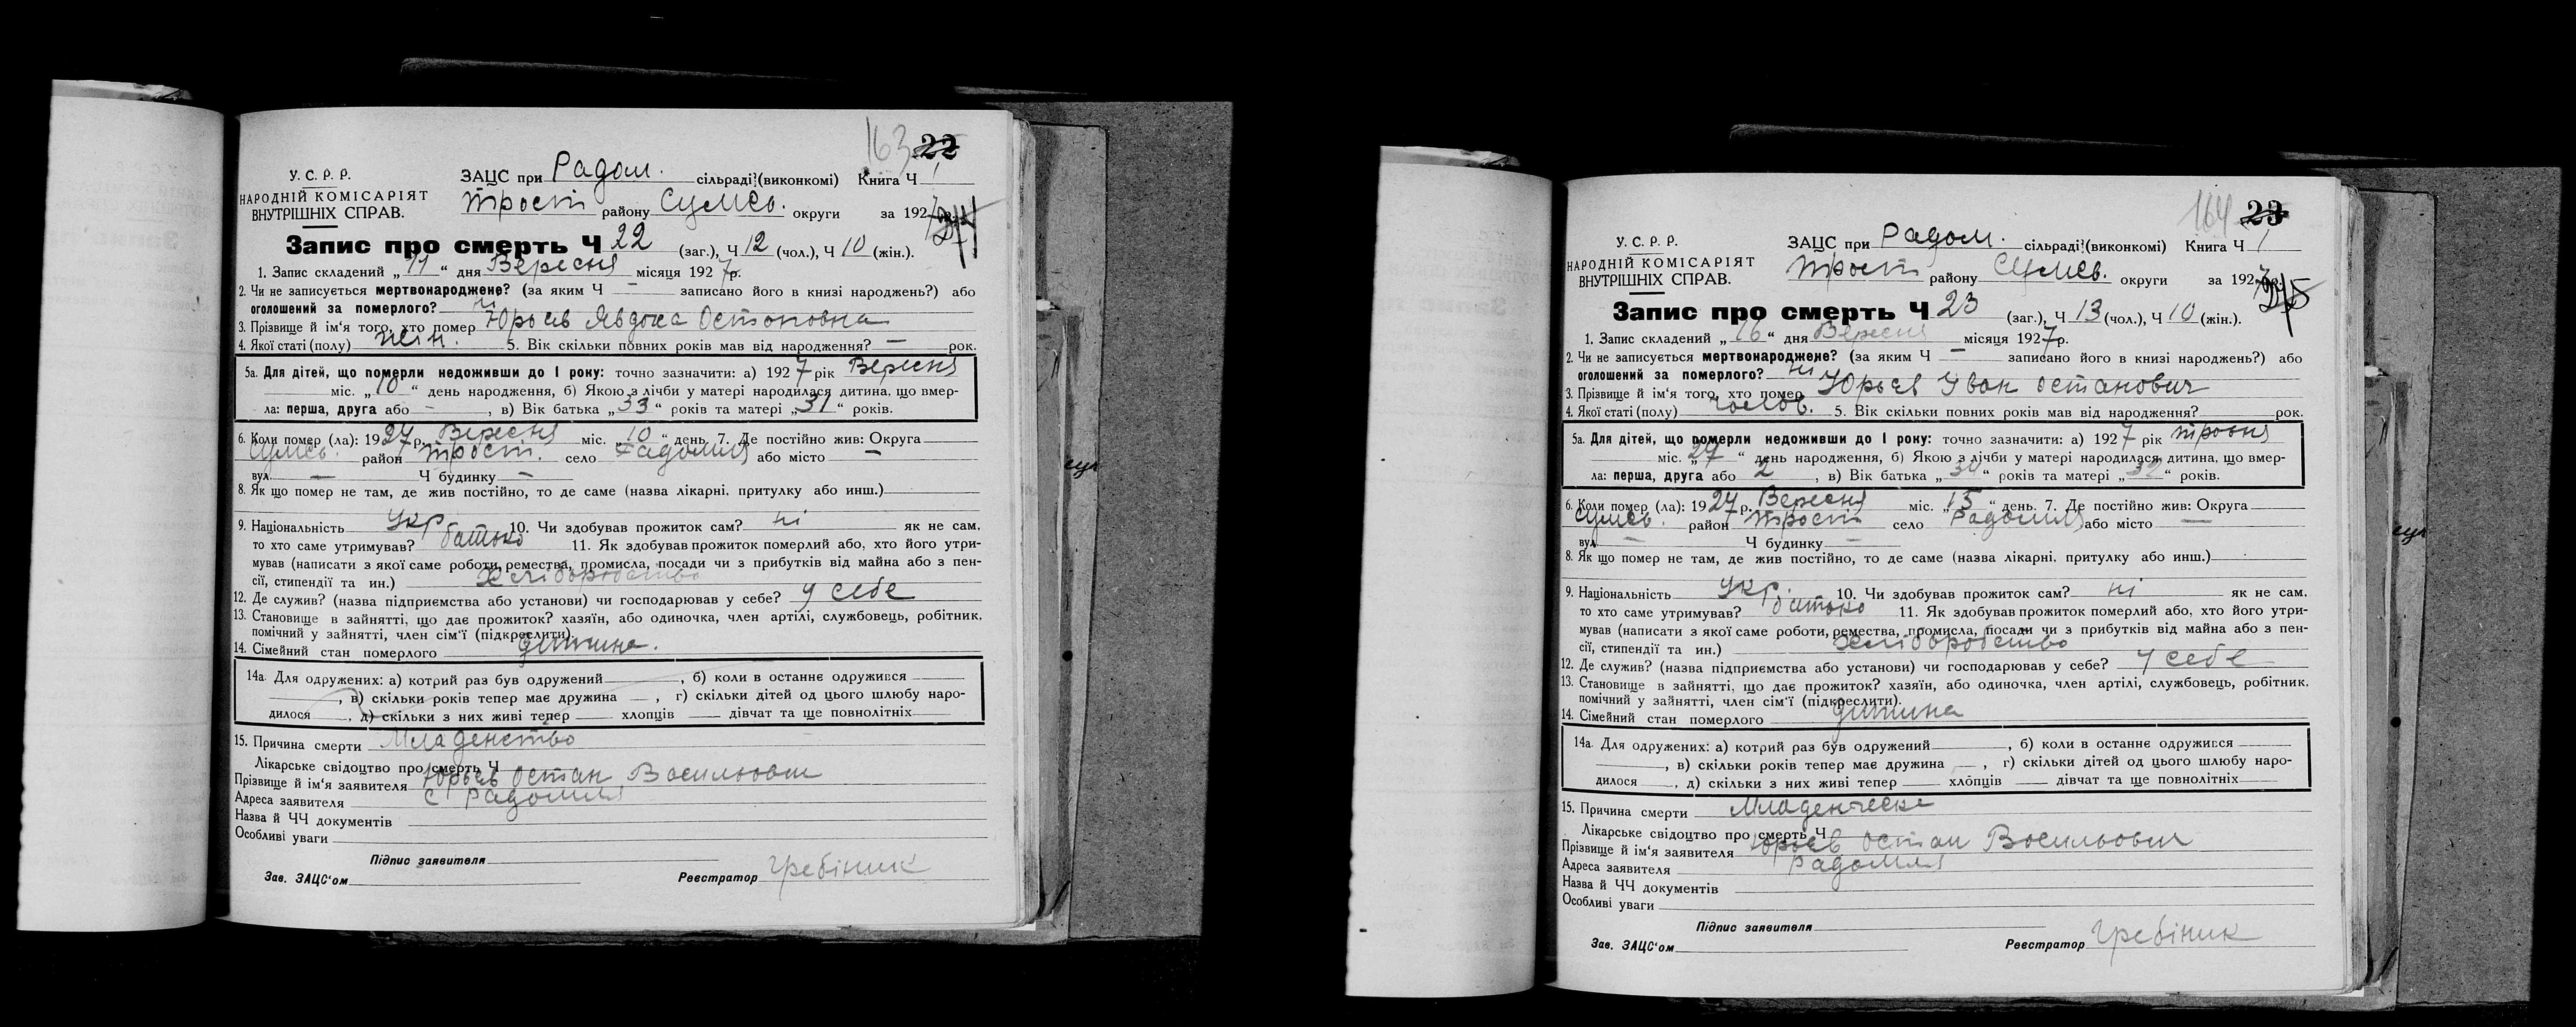 163 22
У. С. Р. Р.
НАРОДНІЙ КОМІСАРІЯТ
ВНУТРІШНІХ СПРАВ.
ЗАЦС при Радом. сільраді (виконкомі) Книга Ч 1
Трост району Сумсь. округи за 1927 р.
Запис про смерть Ч 22 (заг.), Ч 12 (чол.), Ч 10 (жін.).
1. Запис складений „ 11 “ дня Вересня місяця 1927 р.
2. Чи не записується мертвонароджене? (за яким Ч — записано його в книзі народжень?) або
оголошений за померлого? ні
3. Прізвище й ім'я того, хто помер Юрьєв Явдоха Остаповна
4. Якої статі (полу) жін. 5. Вік скільки повних років мав від народження? — рок.
5а. Для дітей, що померли недоживши до 1 року: точно зазначити: а) 1927 рік Вересня
міс. „ 10 “ день народження, б) Якою з лічби у матері народилася дитина, що вмер-
ла: перша, друга або — , в) Вік батька „ 33 “ років та матері „ 31 “ років.
6. Коли помер (ла): 1927 р. Вересня міс. „ 10 “ день 7. Де постійно жив: Округа
Сумсь. район Трост. село Радомля або місто —
вул. — Ч будинку —
8. Як що помер не там, де жив постійно, то де саме (назва лікарні, притулку або инш.)
9. Національність Укр. 10. Чи здобував прожиток сам? ні як не сам,
то хто саме утримував? батько 11. Як здобував прожиток померлий або, хто його утри-
мував (написати з якої саме роботи, ремества, промисла, посади чи з прибутків від майна або з пен-
сії, стипендії та ин.) Хліборобство
12. Де служив? (назва підприємства або установи) чи господарював у себе? у себе
13. Становище в зайнятті, що дає прожиток? хазяїн, або одиночка, член артілі, службовець, робітник,
помічний у зайнятті, член сім'ї (підкреслити).
14. Сімейний стан померлого дитина.
14а. Для одружених: а) котрий раз був одружений , б) коли в останнє одружився
, в) скільки років тепер має дружина — , г) скільки дітей од цього шлюбу наро-
дилося , д) скільки з них живі тепер хлопців дівчат та ще повнолітніх
15. Причина смерти Младенство
Лікарське свідоцтво про смерть Ч
Прізвище й ім'я заявителя Юрьєв Остап Васильович
Адреса заявителя с Радомля
Назва й ЧЧ документів
Особливі уваги
Підпис заявителя
Зав. ЗАЦС'ом Реєстратор Гребіник
164 23
У. С. Р. Р.
НАРОДНІЙ КОМІСАРІЯТ
ВНУТРІШНІХ СПРАВ.
ЗАЦС при Радом. сільраді (виконкомі) Книга Ч 1
Трост району Сумсь. округи за 1927 р.
Запис про смерть Ч 23 (заг.), Ч 13 (чол.), Ч 10 (жін.).
1. Запис складений „ 16 “ дня Вересня місяця 1927 р.
2. Чи не записується мертвонароджене? (за яким Ч — записано його в книзі народжень?) або
оголошений за померлого? ні
3. Прізвище й ім'я того, хто помер Юрьєв Іван Остапович
4. Якої статі (полу) чолов. 5. Вік скільки повних років мав від народження? рок.
5а. Для дітей, що померли недоживши до 1 року: точно зазначити: а) 1927 рік травня
міс. „ 27 “ день народження, б) Якою з лічби у матері народилася дитина, що вмер-
ла: перша, друга або 2 , в) Вік батька „ 34 “ років та матері „ 32 “ років.
6. Коли помер (ла): 1927 р. Вересня міс. „ 15 “ день. 7. Де постійно жив: Округа
Сумсь. район Трост село Радомля або місто —
вул. — Ч будинку —
8. Як що помер не там, де жив постійно, то де саме (назва лікарні, притулку або инш.)
9. Національність Укр. 10. Чи здобував прожиток сам? ні як не сам,
то хто саме утримував? батько 11. Як здобував прожиток померлий або, хто його утри-
мував (написати з якої саме роботи, ремества, промисла, посади чи з прибутків від майна або з пен-
сії, стипендії та ин.) Хліборобство
12. Де служив? (назва підприємства або установи) чи господарював у себе? у себе
13. Становище в зайнятті, що дає прожиток? хазяїн, або одиночка, член артілі, службовець, робітник,
помічний у зайнятті, член сім'ї (підкреслити).
14. Сімейний стан померлого дитина
14а. Для одружених: а) котрий раз був одружений , б) коли в останнє одружився
, в) скільки років тепер має дружина , г) скільки дітей од цього шлюбу наро-
дилося , д) скільки з них живі тепер хлопців дівчат та ще повнолітніх
15. Причина смерти Младенческе
Лікарське свідоцтво про смерть Ч
Прізвище й ім'я заявителя Юрьєв Остап Васильович
Адреса заявителя Радомля
Назва й ЧЧ документів
Особливі уваги
Підпис заявителя
Зав. ЗАЦС'ом Реєстратор Гребіник